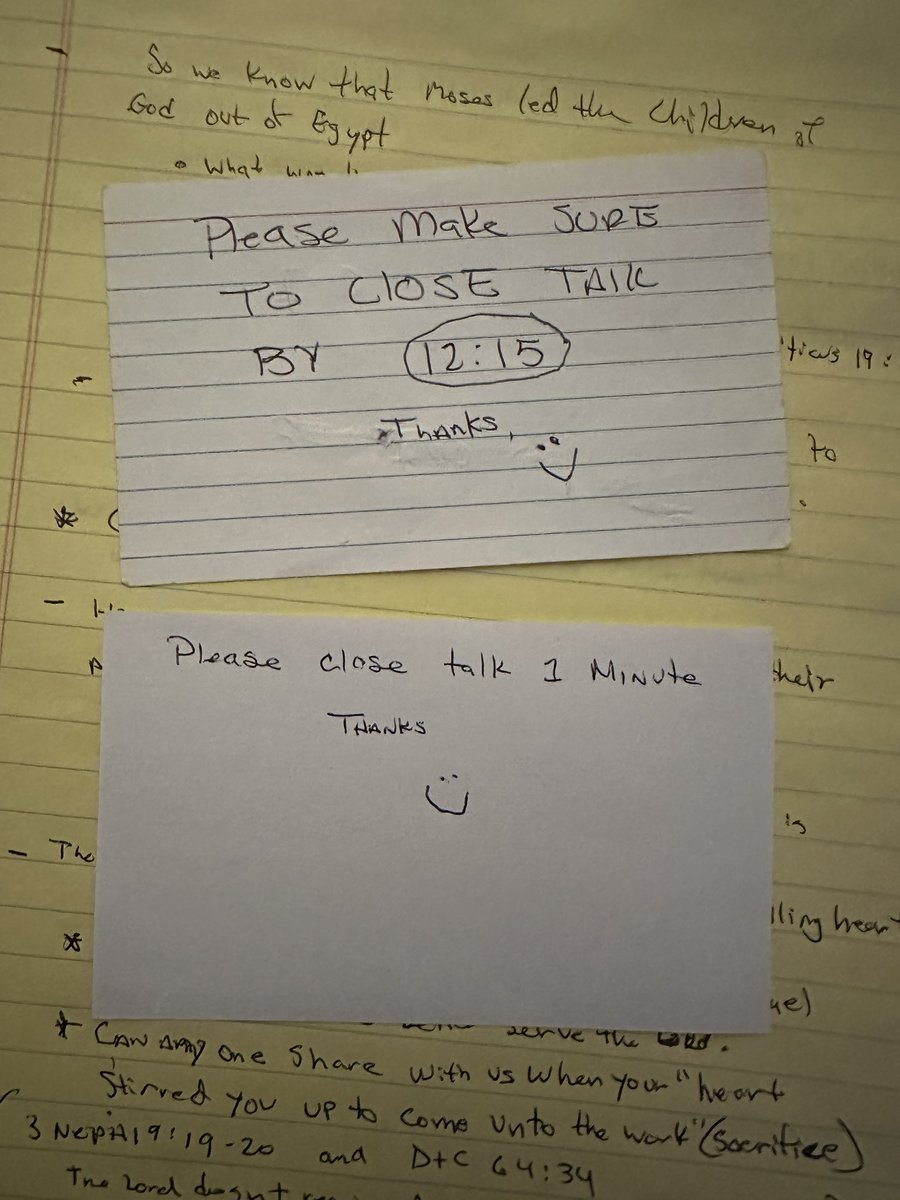 - So we know that Moses led the Children of
God out of Egypt
• What
Please Make SURE
TO CLOSE TALK
BY 12:15
Thanks,
19:
to
*
-
Please close talk 1 Minute
THANKS
their
is
- The
heart
*
serve the
* CAN Any one share with us when your "heart
Stirred you up to come unto the work" (Sacrifice)
3 Nephi 19:19-20 and D+C 64:34
The Lord doesn't